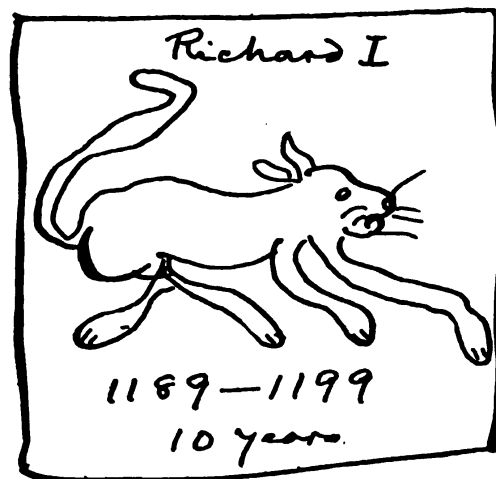 Richard I
1189—1199
10 years.